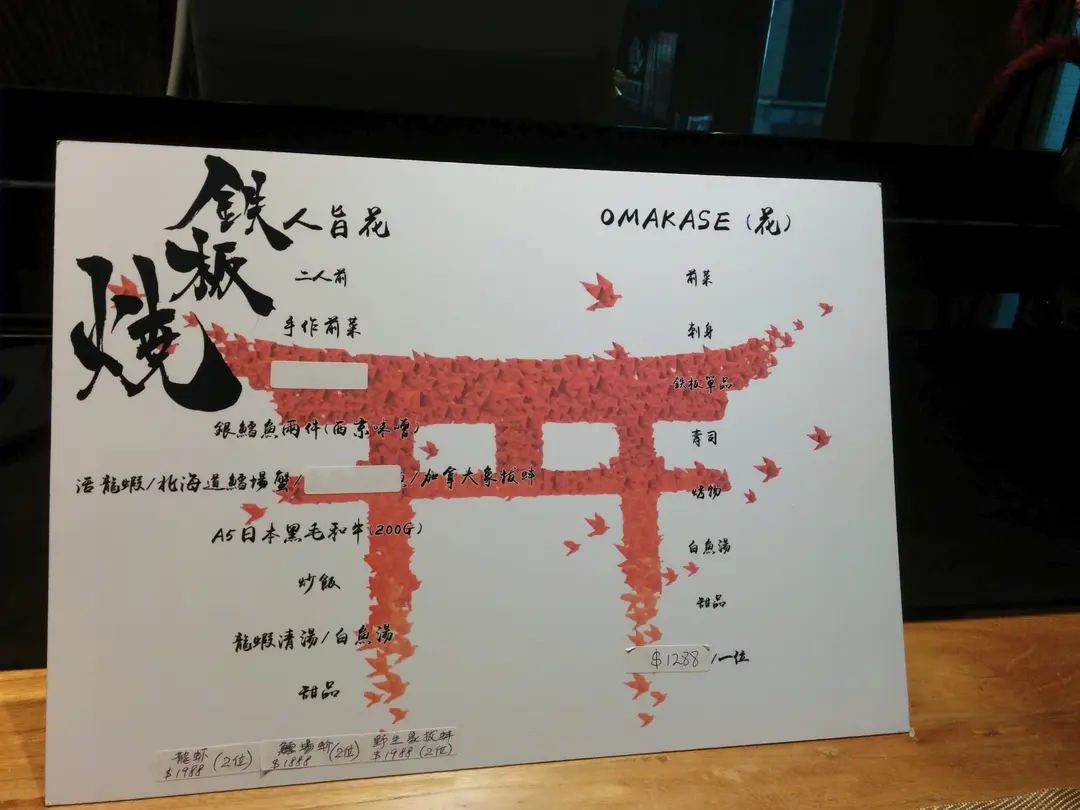 鉄板燒
人旨花
二人前
手作前菜
銀鱈魚兩件(西京味噌)
活龍蝦/北海道鱈場蟹/
/加拿大象拔蚌
A5日本黑毛和牛(200G)
炒飯
龍蝦清湯/白魚湯
甜品
龍虾(2位)
$1988
鱈場蚧(2位)
$1888
野生象拔蚌
$1988(2位)
OMAKASE(花)
前菜
刺身
鉄板單品
壽司
烤物
白魚湯
甜品
$1288/一位